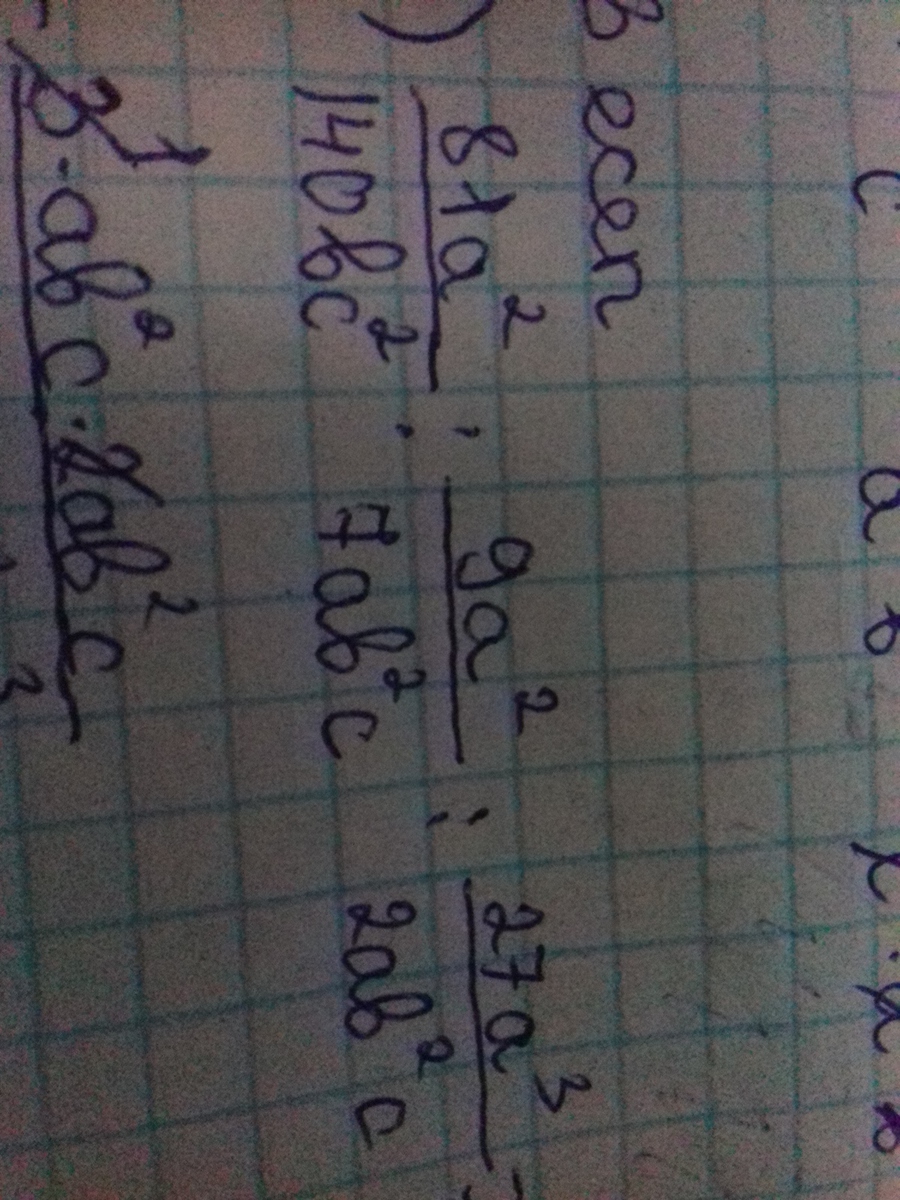 с а в х · х в
в есеп
) 81a² / 140bc² : 9a² / 7ab²c : 27a³ / 2ab²c =
3 1
· ab²c · 2ab²c
3